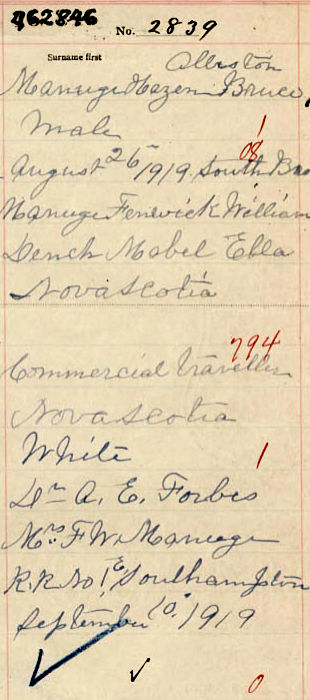 962846
No. 2839
Surname first
Alliston
Manuge Hazen Bruce,
Male 1
08
August 26th 1919 South Bra
Manuge Fenwick William
Dench Mabel Ella
Nova Scotia
794
Commercial Traveller
Nova Scotia
White 1
Dr A. E. Forbes
Mrs. F W. Manuge
R.R No 1, Southampton
September 10. 1919
0